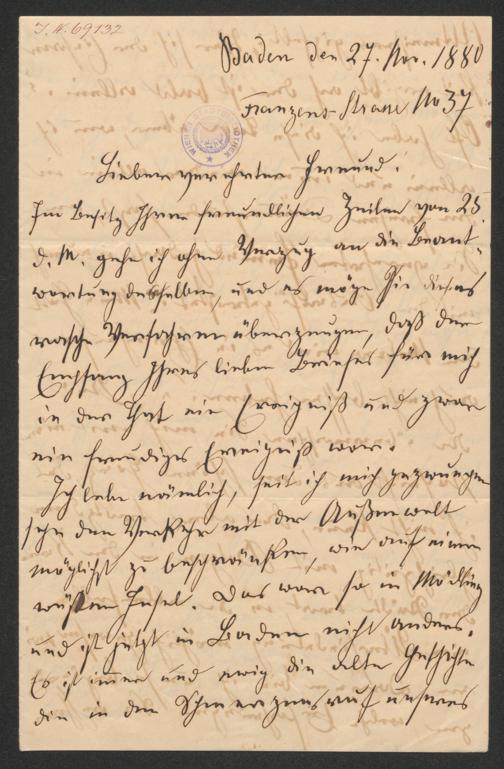 I. N. 69132
Baden den 27. Nov. 1880
Franzens-Strasse No 37
Lieber verehrter Freund.
Im Besitz Ihrer freundlichen Zeilen von 25.
d. M. gehe ich ohne Verzug an die Beant-
wortung derselben, und es möge Sie dieses
rasche Verfahren überzeugen, daß der
Empfang Ihres lieben Briefes für mich
in der That ein Ereigniß und zwar
ein freudiges Ereigniß war.
Ich lebe nämlich, seit ich mich gezwungen
sehe den Verkehr mit der Außenwelt
möglichst zu beschränken, wie auf einer
wüsten Insel. Das war so in Mödling
und ist jetzt in Baden nicht anders.
Es ist immer und ewig die alte Geschichte
die in den Schmerzensruf unseres